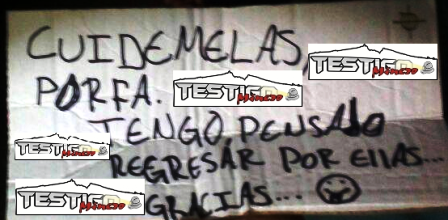 CUIDEMELAS,
PORFA.
TENGO, PENSADO
REGRESAR POR EllAS...
GRACIAS...
TESTIGO
TESTIGO
TESTIGO
TESTIGO